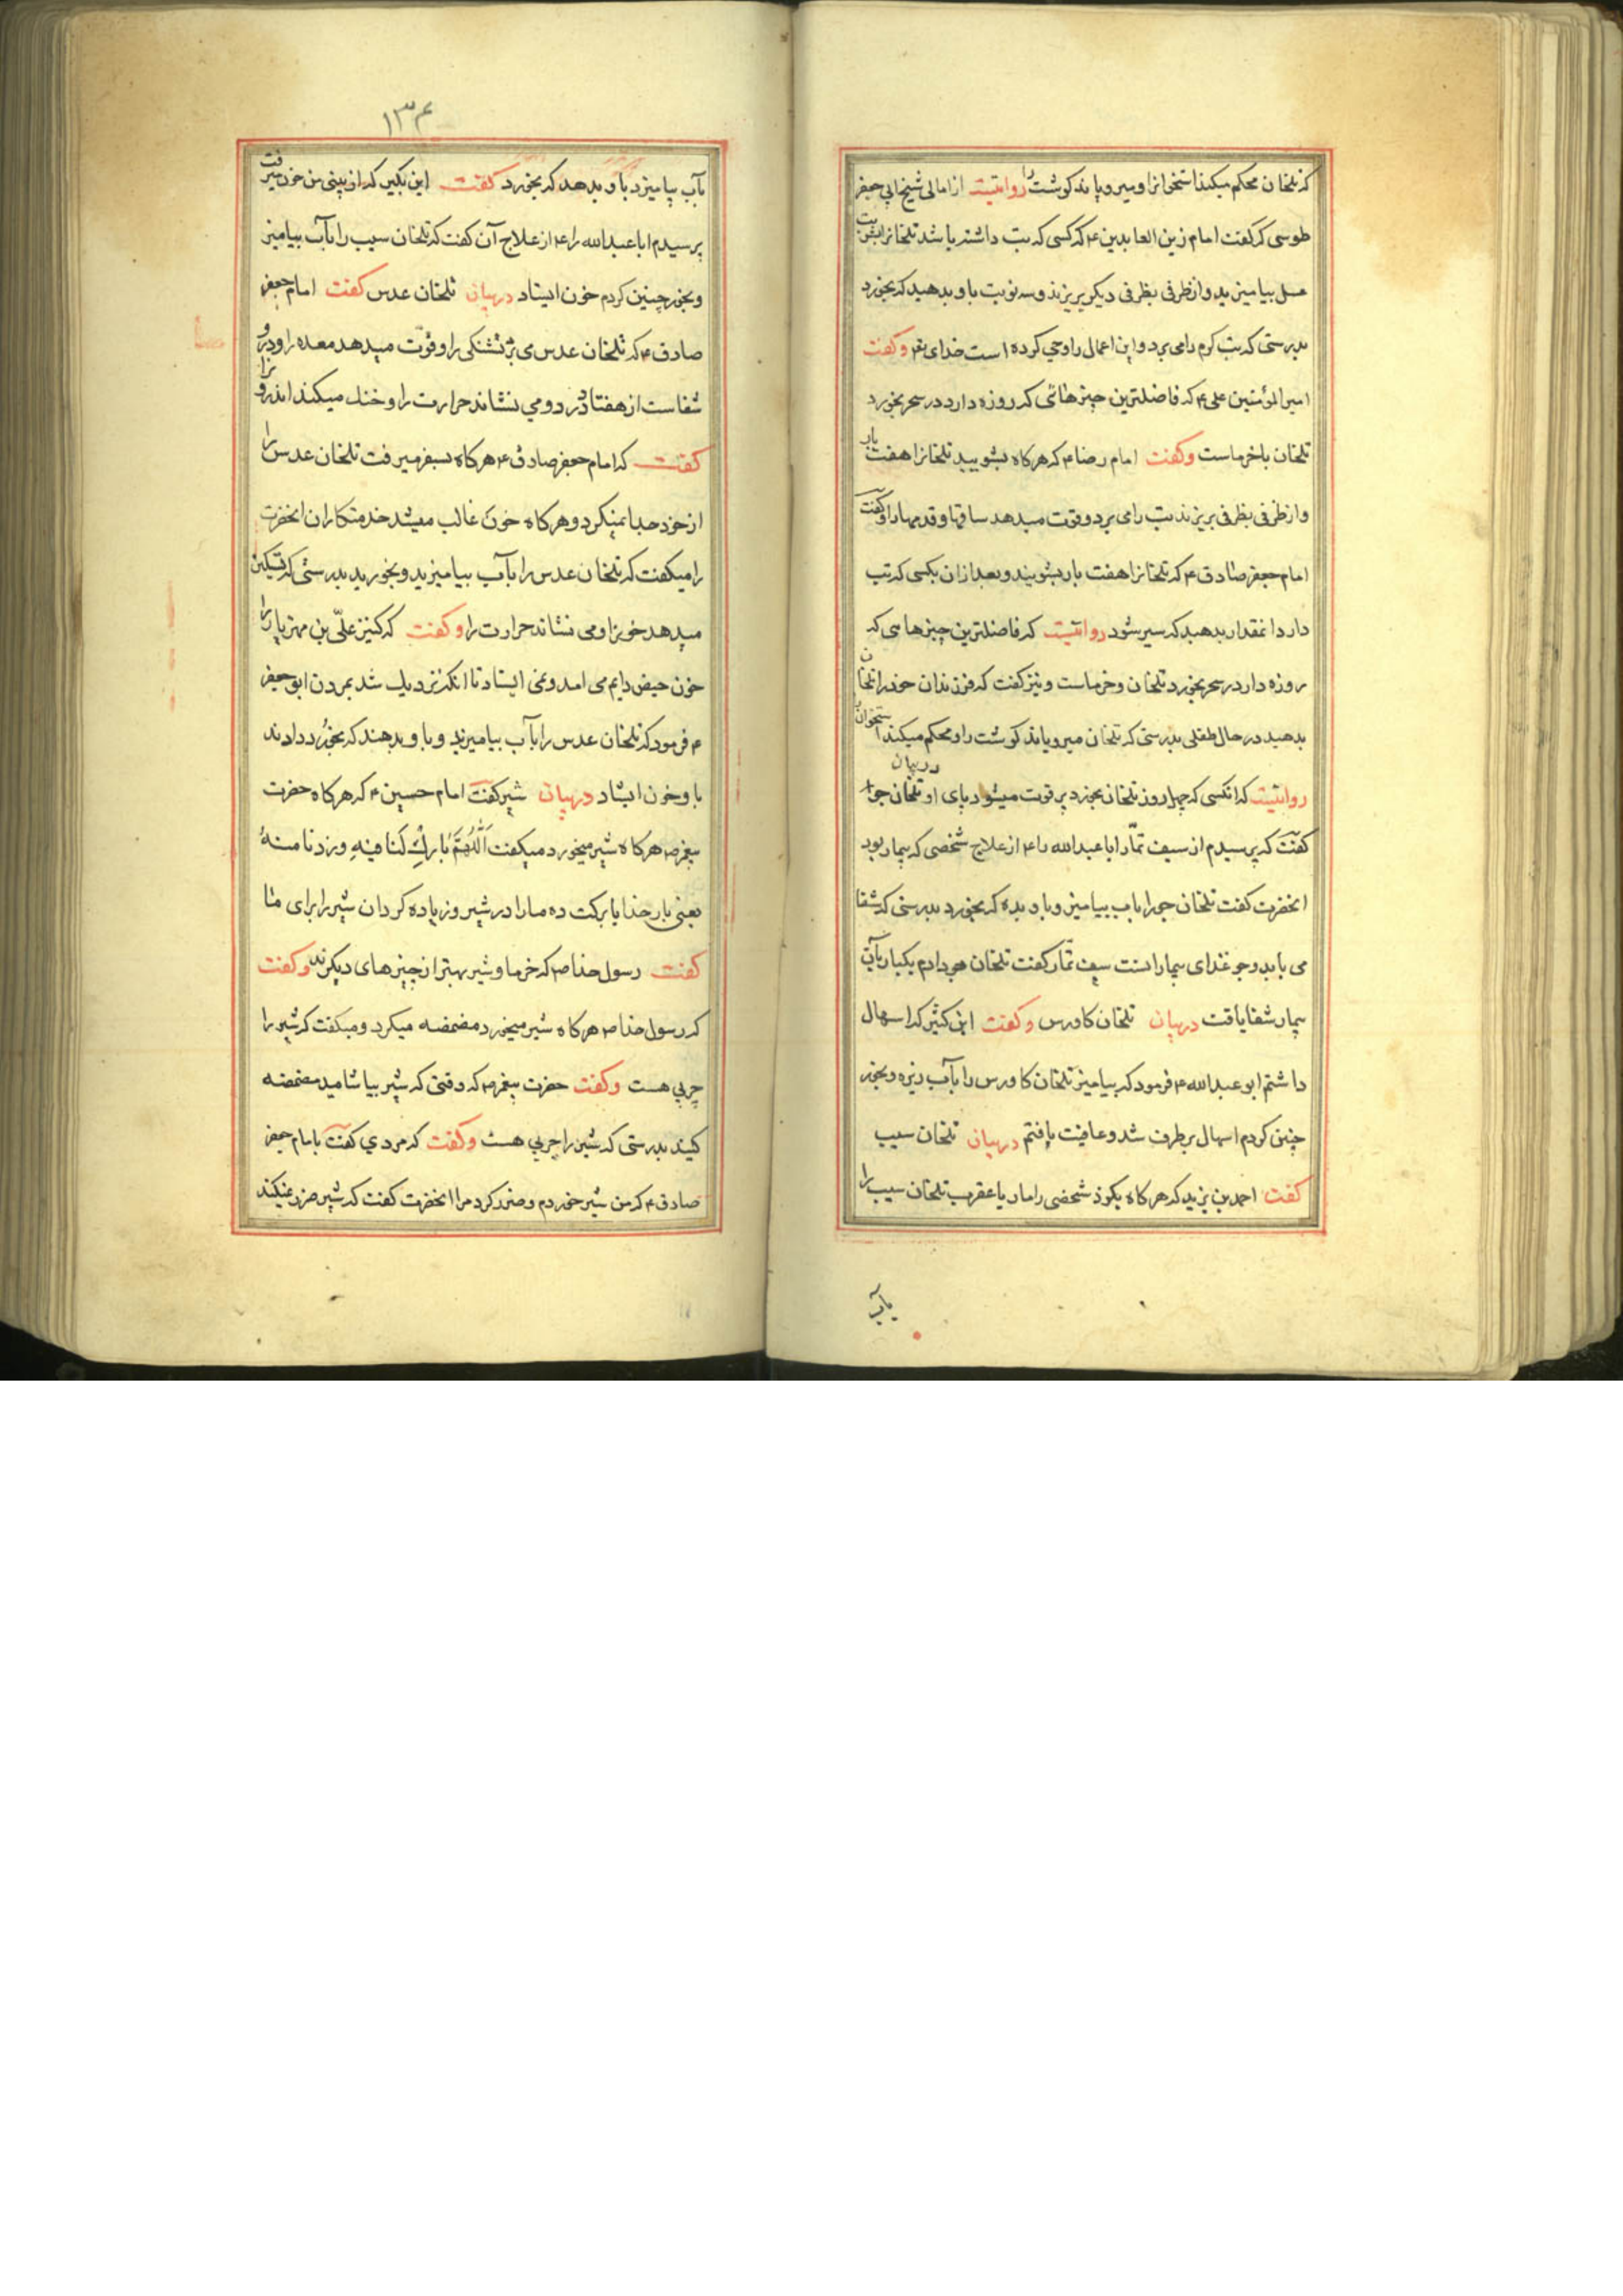 که تلخان محکم میکند استخوانرا و میرویاند کوشت را روایتست از امالی شیخ ابی جعفر
طوسی که کفت امام زین العابدین ع که کسی که تب داشته باشد تلخانرا بشربت
عسل بیامیزید و از ظرفی بظرفی دیکر بریزند و سه نوبت باو بدهید که بخورد
بدرستی که تب کرم را می برد و این اعمال را وحی کرده است خدای تع و کفت
امیرالمؤمنین علی ع که فاضلترین چیزهائی که روزه دارد در سحر بخورد
تلخان با خرماست و کفت امام رضا ع که هرکاه بشویید تلخانرا هفت بار
و از ظرفی بظرفی بریزند تب را می برد و قوت میدهد ساقها و قدمها را و کفت
امام جعفر صادق ع که تلخانرا هفت بار بشویند و بعد از ان بکسی که تب
دارد انمقدار بدهید که سیر شود روایتست که فاضلترین چیزهاسی که
روزه دار در سحر بخورد تلخان و خرماست و نیز کفت که فرزندان خود را تلخان
بدهید در حال طفلی بدرستی که تلخان میرویاند کوشت را و محکم میکند استخوان
روایتست که انکسی که چهل روز تلخان بخورد پر قوت میشود پای او در بیان تلخان جو
کفت که پرسیدم از سیف تمار ابا عبدالله را ع از علاج شخصی که بیمار بود
انحضرت کفت تلخان جو را باب بیامیز و باو بده که بخورد بدرستی که شفا
می یابد و جو غذای بیمار انست سیف تمار کفت تلخان جو دادم یکبار بآن
بیمار شفا یافت در بیان تلخان کاورس و کفت ابن کثیر که اسهال
داشتم ابو عبدالله ع فرمود که بیامیز تلخان کاورس را بآب زیره و بخور
چنین کردم اسهال برطرف شد و عافیت یافتم در بیان تلخان سیب
کفت احمد بن یزید که هرکاه بکوذ شخصی را مار یا عقرب تلخان سیب را
بآب
۱۳۴
بآب بیامیزد باو بدهد که بخورد کفت ابن بکیر که از بینی من خون میرفت
پرسیدم ابا عبدالله را ع از علاج آن کفت که تلخان سیب را بآب بیامیز
و بخور چنین کردم خون ایستاد در بیان تلخان عدس کفت امام جعفر
صادق ع که تلخان عدس می برد تشنکی را و قوت میدهد معده را و در او
شفاست از هفتاد درد و می نشاند حرارت را و خنک میکند اندرو را
کفت که امام جعفر صادق ع هرکاه بسفر میرفت تلخان عدس را
از خود جدا نمیکرد و هرکاه خون غالب میشد خدمتکاران انحضرت
را میکفت که تلخان عدس را بآب بیامیزید و بخورید بدرستی که تسکین
میدهد خونرا و می نشاند حرارت را و کفت که کنیز علی بن مهزیار را
خون حیض دایم می امد و نمی ایستاد تا انکه نزدیک شد بمردن ابو جعفر
ع فرمود که تلخان عدس را بآب بیامیزند و باو بدهند که بخورد دادند
باو خون ایستاد در بیان شیر کفت امام حسین ع که هرکاه حضرت
پیغمبر ص هرکاه شیر میخورد میکفت اَللّهُمَّ بارِكْ لَنا فیهِ و زدنا منهُ
یعنی بار خدایا برکت ده ما را در شیر و زیاده کردان شیر را برای ما
کفت رسول خدا ص که خرما و شیر بهتر از چیزهای دیکرند و کفت
که رسول خدا ص هرکاه شیر میخورد مضمضه میکرد و میکفت که شیر را
چربی هست و کفت حضرت پیغمبر ص که وقتی که شیر بیاشامید مضمضه
کنید بدرستی که شیر را چربی هست و کفت که مردی کفت بامام جعفر
صادق ع که من شیر خوردم و ضرر کرد مرا انحضرت کفت که شیر ضرر نمیکند